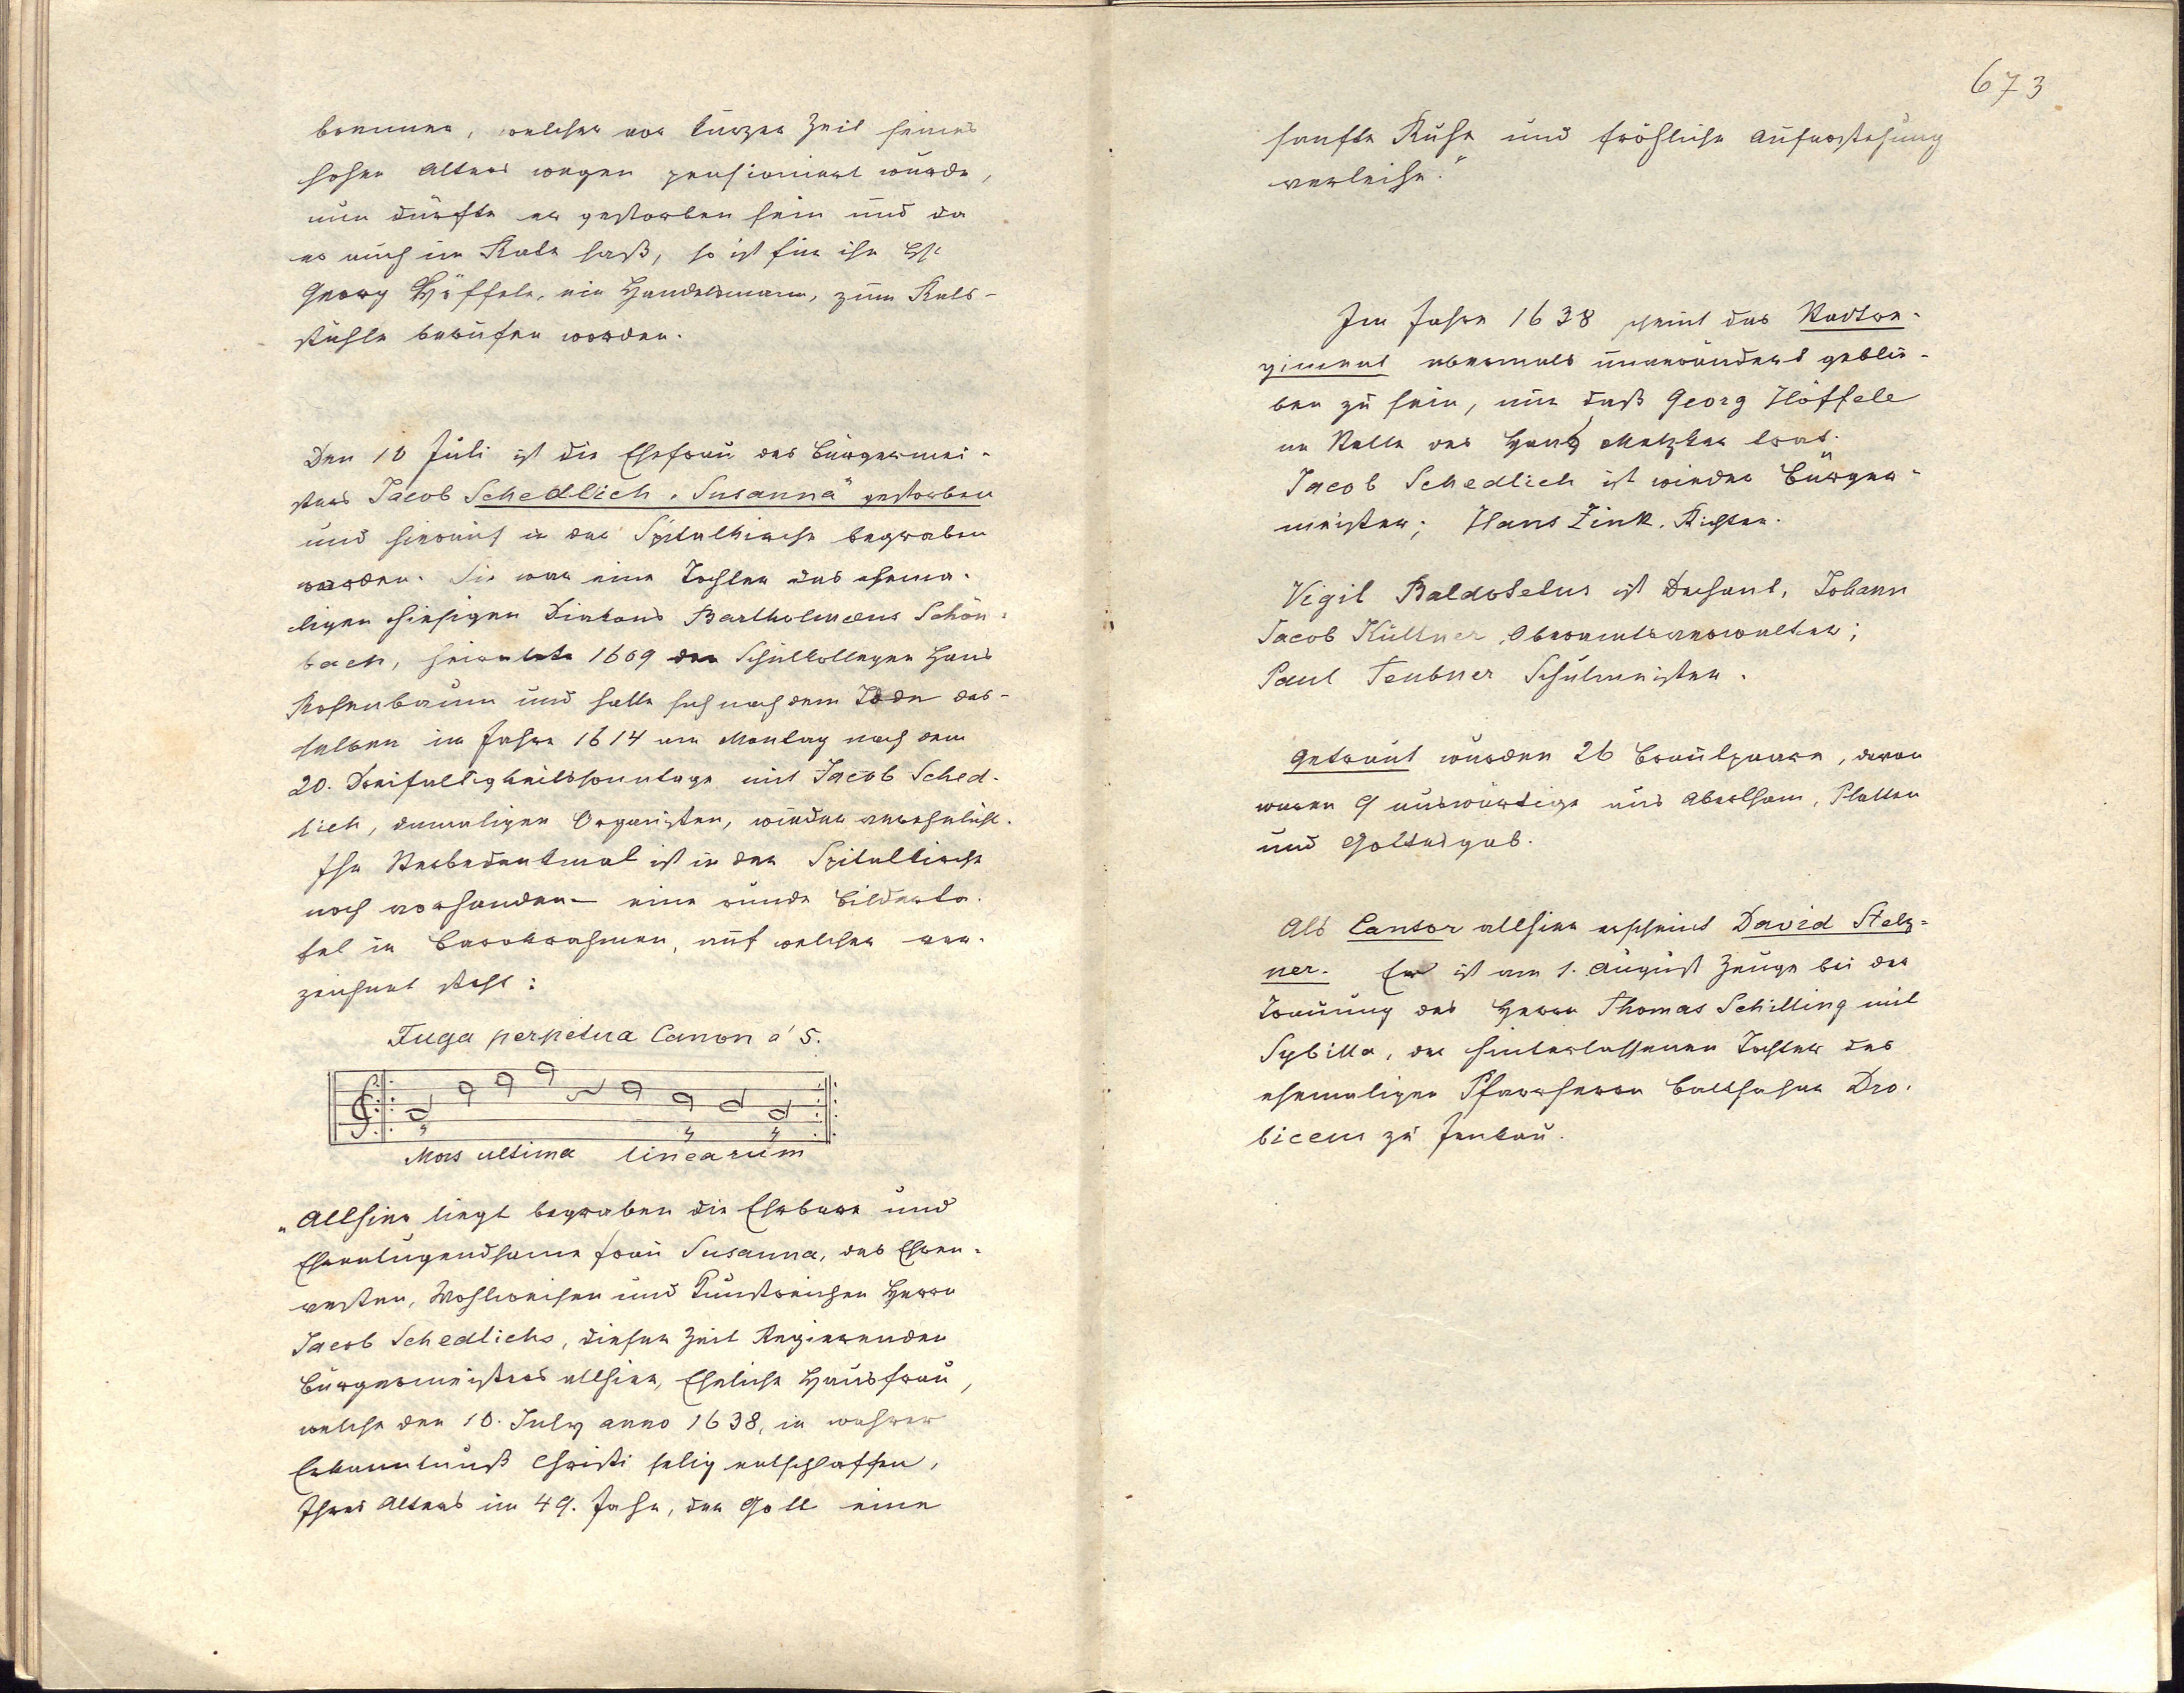 brenner, welcher vor kurzer Zeit seines
hohen Alters wegen pensioniert wurde,
nun dürfte er gestorben sein und da
er auch im Rate saß, so ist für ihn
Georg Höffele, ein Handelsmann, zum Rats-
stuhle berufen worden.
Den 10 Juli ist die Ehefrau des Bürgermei-
sters Jacob Schedlich „Susanna" gestorben
und hierauf in der Spitalkirche begraben
worden. Sie war eine Tochter des ehema-
ligen hiesigen Diakons Bartholmaeus Schön-
bach, heiratete 1609 den Schulkollegen Hans
Rosenbaum und hatte sich nach dem Tode des-
selben im Jahre 1614 am Montag nach dem
20. Dreifaltigkeitssonntage mit Jacob Sched-
lich, damaligen Organisten, wieder verehelicht.
Ihr Sterbedenkmal ist in der Spitalkirche
noch vorhanden – eine runde Bilderta-
fel in Barokrahmen, auf welcher ver-
zeichnet steht:
Fuga perpetua Canon a' 5.
Mors ultima linearum
„Allhier liegt begraben die Ehrbare und
Ehrentugendsame Frau Susanna, des Ehren-
vesten, Wohlweisen und Kunstreichen Herrn
Jacob Schedlichs, dieser Zeit Regierenden
Bürgermeisters allhier, Eheliche Hausfrau,
welche den 10. July anno 1638, in wahrer
Erkanntnuß Christi selig entschlaffen,
Ihres Alters im 49. Jahr, der Gott eine
673
sanfte Ruhe und fröhliche Auferstehung
verleihe."
Im Jahre 1638 scheint das Stadtre-
giment abermals unverändert geblie-
ben zu sein, nur daß Georg Höffele
an Stelle des Hans Metzker trat.
Jacob Schedlich ist wieder Bürger-
meister; Hans Zink, Richter.
Vigil Baldotelus ist Dechant, Johann
Jacob Küttner, Oberamtsverwalter;
Paul Teubner Schulmeister.
Getraut wurden 26 Brautpaare, davon
waren 9 auswärtige aus Abertham, Platten
und Gottesgab.
Als Cantor allhier erscheint David Stelz-
ner. Er ist am 1. August Zeuge bei der
Trauung des Herrn Thomas Schilling mit
Sybilla, der hinterlassenen Tochter des
ehemaligen Pfarrherrn Balthasar Dro-
biceus zu Jenkau.